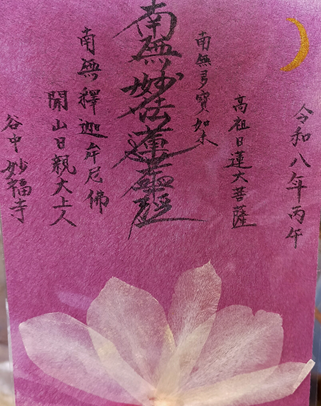 令和八年丙午
高祖日蓮大菩薩
南無多寳如来
南無妙法蓮華經
南無釋迦牟尼佛
開山日親大上人
谷中妙福寺